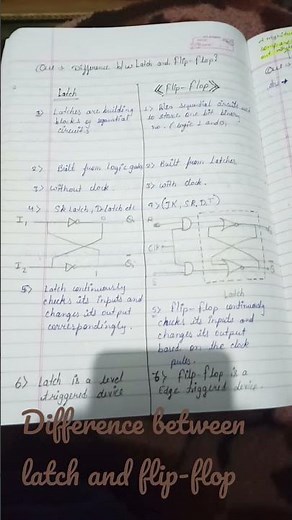 Difference b/w Latch and Flip-Flop?
Latch
1) Latches are building
blocks of sequential
circuits
2) Built from logic gates
3) without clock.
4) SR Latch, D Latch etc
I1
Q
I2
Q
5) Latch continuously
checks its inputs and
changes its output
correspondingly.
6) Latch is a level
triggered device
<<Flip-flop>>
to store one bit binary
no - (logic 1 and 0)
2) Built from Latches
3) with clock.
4) (JK, SR, D, T)
Clk
Latch
5) flip-flop continuously
checks its inputs and
changes its output
based on the clock
pulse.
6) flip-flop is a
Edge triggered device.
Difference between
latch and flip-flop